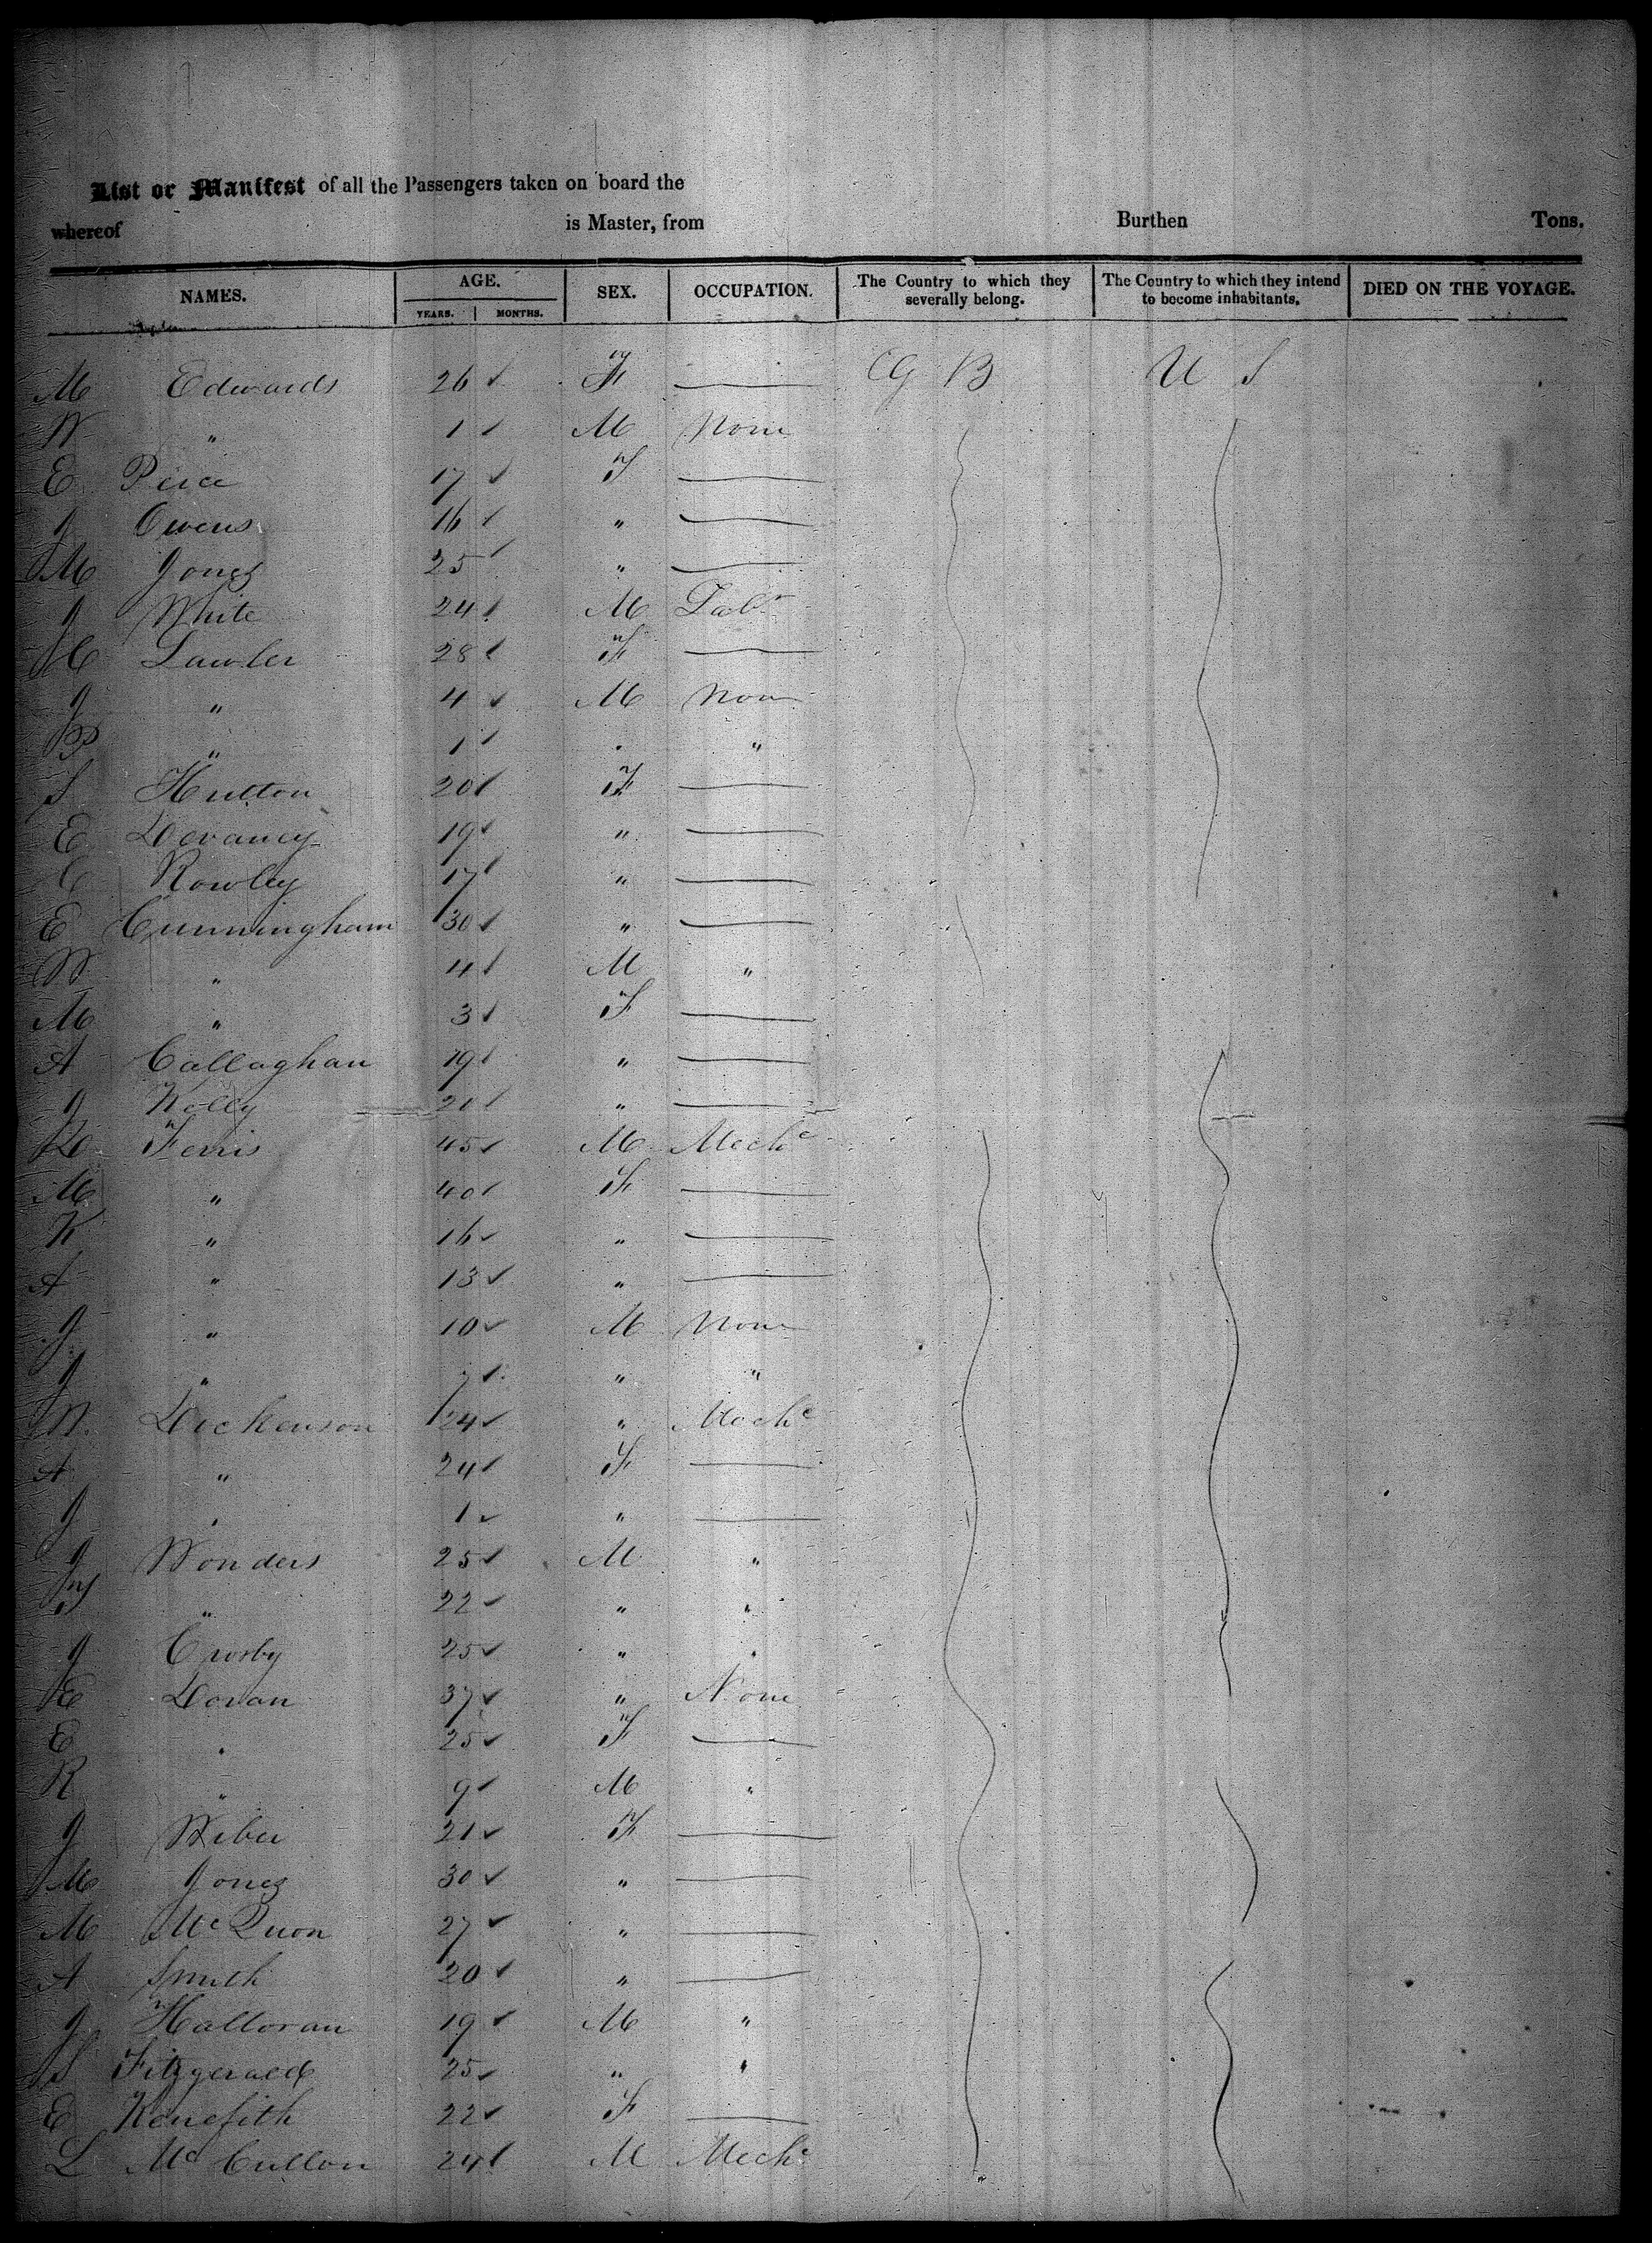 List or Manifest of all the Passengers taken on board the
whereof is Master, from Burthen Tons.
NAMES. AGE. SEX. OCCUPATION. The Country to which they severally belong. The Country to which they intend to become inhabitants. DIED ON THE VOYAGE.
YEARS. MONTHS.
M Edwards 26 F — G B U S
W " 1 M None
E Peice 17 F —
J Owens 16 " —
M Jones 25 " —
J White 24 M Labr
C Lawler 28 F —
J " 4 M Non
P " 1 " "
S Hulton 20 F —
E Devaney 19 " —
C Rowley 17 " —
E Cunningham 30 " —
W " 4 M "
M " 3 F —
A Callaghan 19 " —
J Kelly 20 " —
R Ferris 45 M Mechc
M " 40 F —
K " 16 " —
A " 13 " —
J " 10 M None
J " 7 " "
W Dickenson 24 " Mechc
A " 24 F —
J " 1 " —
J Wonders 25 M "
" 22 " "
J Crosby 25 " "
E Doran 37 " None
E " 25 F —
R " 9 M "
J Weber 21 F —
M Jones 30 " —
M McQuon 27 " —
A Smith 20 " —
J Halloran 19 M "
S Fitzgerald 25 " "
E Kenefith 22 F —
L McCullon 24 M Mechc